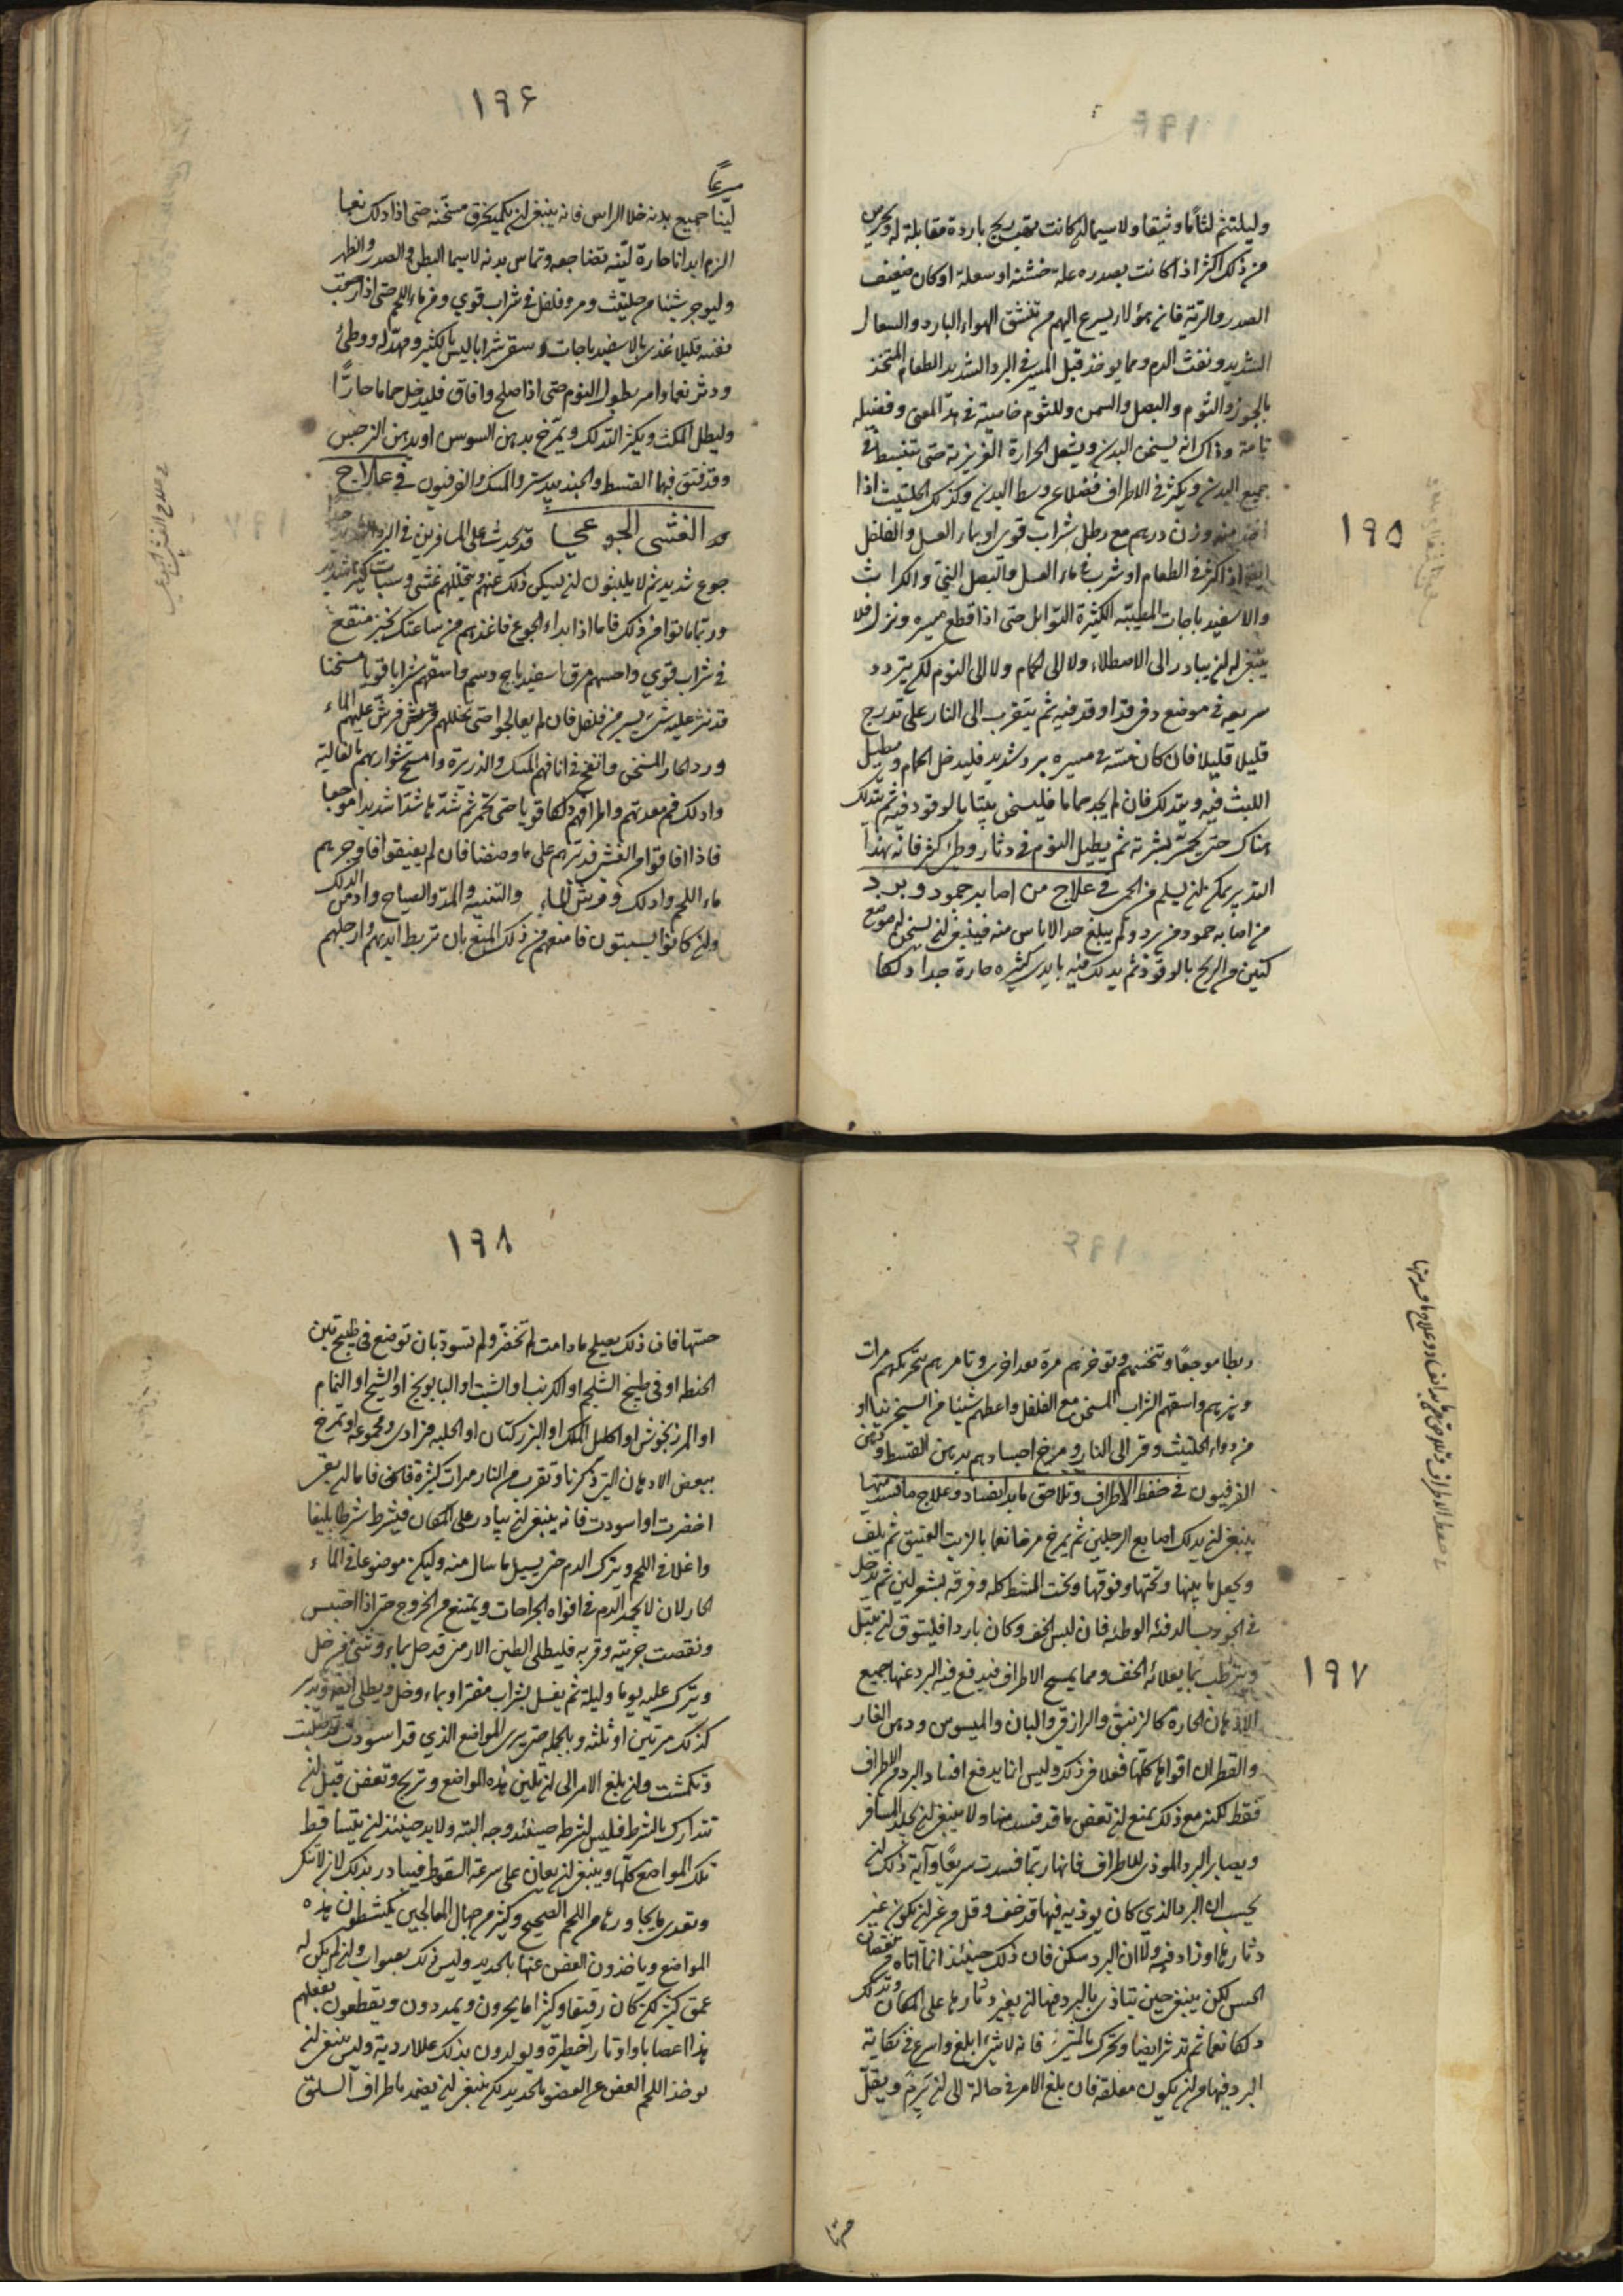 وليلتثم لثاما وثيقا ولا سيما ان كانت تهب ريح باردة مقابلة له وليحرس
من ذلك اكثر اذا كانت بصدره علة خشنة او سعلة او كان ضعيف
الصدر والرية فانه هؤلاء يسرع اليهم من تنشق الهواء البارد والسعال
الشديد ونفث الدم ومما يوخذ قبل المسير في البرد الشديد الطعام المتخذ
بالجوز والثوم والبصل والسمن وللثوم خاصية في هذا المعنى وفضيلة
تامة وذاك انه يسخن البدن ويشعل الحرارة الغريزية حتى تنبسط في
جميع البدن ويكثر في الاطراف فضلا عن وسط البدن وكذلك الحلتيث اذا
اخذ منه وزن درهم مع رطل شراب قوي او بماء العسل والفلفل
ايضا اذا كثر في الطعام او شرب في ماء العسل والبصل الني والكراث
والاسفيدباجات الطيبة الكثيرة التوابل حتى اذا قطع مسيره ونزل فلا
ينبغي له ان يبادر الى الاصطلاء ولا الى الحمام ولا الى النوم لكن يتردد
سريعه في موضع دفي قد اوقد فيه ثم يتقرب الى النار على تدرج
قليلا قليلا فان كان مسه في مسيره برد شديد فليدخل الحمام ويطيل
اللبث فيه ويتدلك فان لم يجد حماما فليسخن بيتا بالوقود فيه ثم يتدلك
هناك حتى يحمر بشرته ثم يطيل النوم في دثار وطي كثير فانه بهذا
التدبير يمكن ان يسلم من الحمى في علاج من اصابه جمود وبرد
من اصابه جمود من برد ولم يبلغ حد الاياس منه فينبغي ان يسخن له موضع
كنين من الريح بالوقود ثم يدلك فيه بايدي كثيره حارة جدا دلكا
١٩٥
١٩٦
سرعا
لينا جميع بدنه خلا الراس فانه ينبغي ان يكمد بخرق مسخنة حتى اذا دلك نعما
الزم ابدانا حارة لينه تضاجعه وتماس بدنه لا سيما البطن والصدر والظهر
وليوجر شيئا من حلتيث ومر وفلفل في شراب قوي ومن ماء اللحم حتى اذا رجعت
نفسه قليلا غذي بالاسفيدباجات وسقي شرابا ليس بالكثير ومهد له ووطئ
ودثر نعما وامر بطول النوم حتى اذا صلح وافاق فليدخل حماما حارا
وليطل المكث ويكثر التدلك ويمرخ بدهن السوسن او بدهن النرجس
وقد فتق فيها القسط والجندبيدستر والمسك والفرفيون في علاج
الغشى الجوعي قد يحدث على المسافرين في البرد
جوع شديد ثم لا يلبثون ان يسكن ذلك عنهم ويتخللهم غشي وسبات كثير شديد
وربما ماتوا من ذلك فاما اذا بداء الجوع فاغذهم من ساعتك بخبز منقع
في شراب قوي واحسهم مرق اسفيدباج دسم واسقهم شرابا قويا مسخنا
قد نثر عليه شيء يسير من فلفل فان لم يعالجوا حتى تخللهم فرش عليهم الماء
ورد الحار المسخن وانفخ في انافهم المسك والذريرة وامسح شواربهم بالغالية
وادلك فم معدتهم واطرافهم دلكا قويا حتى تحمر ثم تشد ها شدا شديدا موجعا
فاذا افاقوا من الغشي فدبرهم على ما وصفنا فان لم يفيقوا فاوجرهم
ماء اللحم وادلك ورش الماء والتنبيه والمد والصياح وادمن الدلك
وان كانوا يسبتون فامنعهم من ذلك المنع بان تربط ايديهم وارجلهم
في علاج الغشي الجوعي
ربطا موجعا وتنخسهم وتوخزهم مرة بعد اخرى وتامرهم بتحريكهم مرات
وتنزيهم واسقهم الشراب المسخن مع الفلفل واعطهم شيئا من السجزنيا او
من دواء الحلتيث وقرب الى النار ومرخ اجسادهم بدهن القسط ودهن
الفرفيون في حفظ الاطراف وتلاحق ما بدا بفساد وعلاج ما فسد منها
ينبغي ان يدلك اصابع الرجلين ثم يمرخ مرخا نعما بالزيت العتيق ثم يلف
ويجعل ما بينها وتحتها وفوقها وتحت المشط كله وفرقه بشعر لين ثم يدخل
في الجورب الدفئه الوطئه فان لبس الخف وكان باردا فليتوق ان يبتل
ويترطب بما يعلائه الخف ومما يمسح الاطراف فيدفع فيه البرد عنها جميع
الادهان الحارة كالزنبق والرازقي والبان والميسوس ودهن الغار
والقطران اقواها كلها فعلا في ذلك وليس انما يدفع افساد البرد من الاطراف
فقط لكنه مع ذلك يمنع ان تعفن ما قد فسد منها ولا ينبغي ان يجلد المسافر
ويصابر البرد الموذي للاطراف فانها ربما فسدت سريعا وآية ذلك ان
يحسب ان البرد الذي كان يوذيه فيها قد خف وقل من غير ان يكون غير
دثارها او زاد فيه ولا ان البرد سكن فان ذلك حينئذ انما اتاه من نقصان
الحس لكن ينبغي حين يتاذى بالبرد فيها ان يغير دثارها على المكان وتدلك
دلكا نعما ثم تدثر ايضا وتحرك بالمشي فانه لا شيء ابلغ واسرع في نكاية
البرد فيها من ان يكون معلقه فان بلغ الامر في حالة الى ان يرم ويقل
في حفظ الاطراف وتلاحق ما بدا بفساد وعلاج ما فسد منها
١٩٧
حسها
١٩٨
حسها فان ذلك يصلح ما دامت لم تخضر ولم تسود بان توضع في طبيخ تبن
الحنطه او في طبيخ الشلجم او الكرنب او الشبت او البابونج او الشيح او النمام
او المرزنجوش او اكليل الملك او البزر كتان او الحلبه فرادى ومجموعة او تمرخ
ببعض الادهان التي ذكرنا وتقرب من النار مرات كثيرة فاما ان بقي
اخضرت او اسودت فانه ينبغي ان يبادر على المكان فيشرط شرطا بليغا
واغلا في اللحم ويترك الدم حتى يسيل ما سال منه وليكن موضوعا في الماء
الحار لان لا يجمد الدم في افواه الجراحات ويمتنع من الخروج حتى اذا احتبس
ونقصت جريته وقربه فليطلى الطين الارمني قد حل بماء وشيء من خل
ويترك عليه يوما وليلة ثم يغسل بشراب مفتر او بماء وخل ويطلى ايضا ويدبر
كذلك مرتين او ثلثه وبالجملة حتى يرى المواضع الذي قد اسودت قد صلبت
وتكمشت وان بلغ الامر الى ان تلين هذه المواضع وتريح وتعفن قبل ان
تتدارك بالشرط فليس لشرطه حينئذ وجه البته ولا بد حينئذ ان يتساقط
تلك المواضع كلها وينبغي ان يعان على سرعة السقوط فيبادر بذلك لان لا تاكل
وتعدي ما يجاورها من اللحم الصحيح وكثير من جهال المعالجين يكشطون هذه
المواضع وياخذون العفن عنها بالحديد وليس ذلك بصواب وان لم يكن له
عمق كثير لكن كان رقيقا وكثيرا ما يجرون ويمددون ويقطعون بفعلهم
هذا اعصابا واوتارا خطيرة ويولدون بذلك عللا ردية وليس ينبغي ان
يوخذ اللحم العفن عن العضو بالحديد لكن ينبغي ان يضمد باطراف السلق